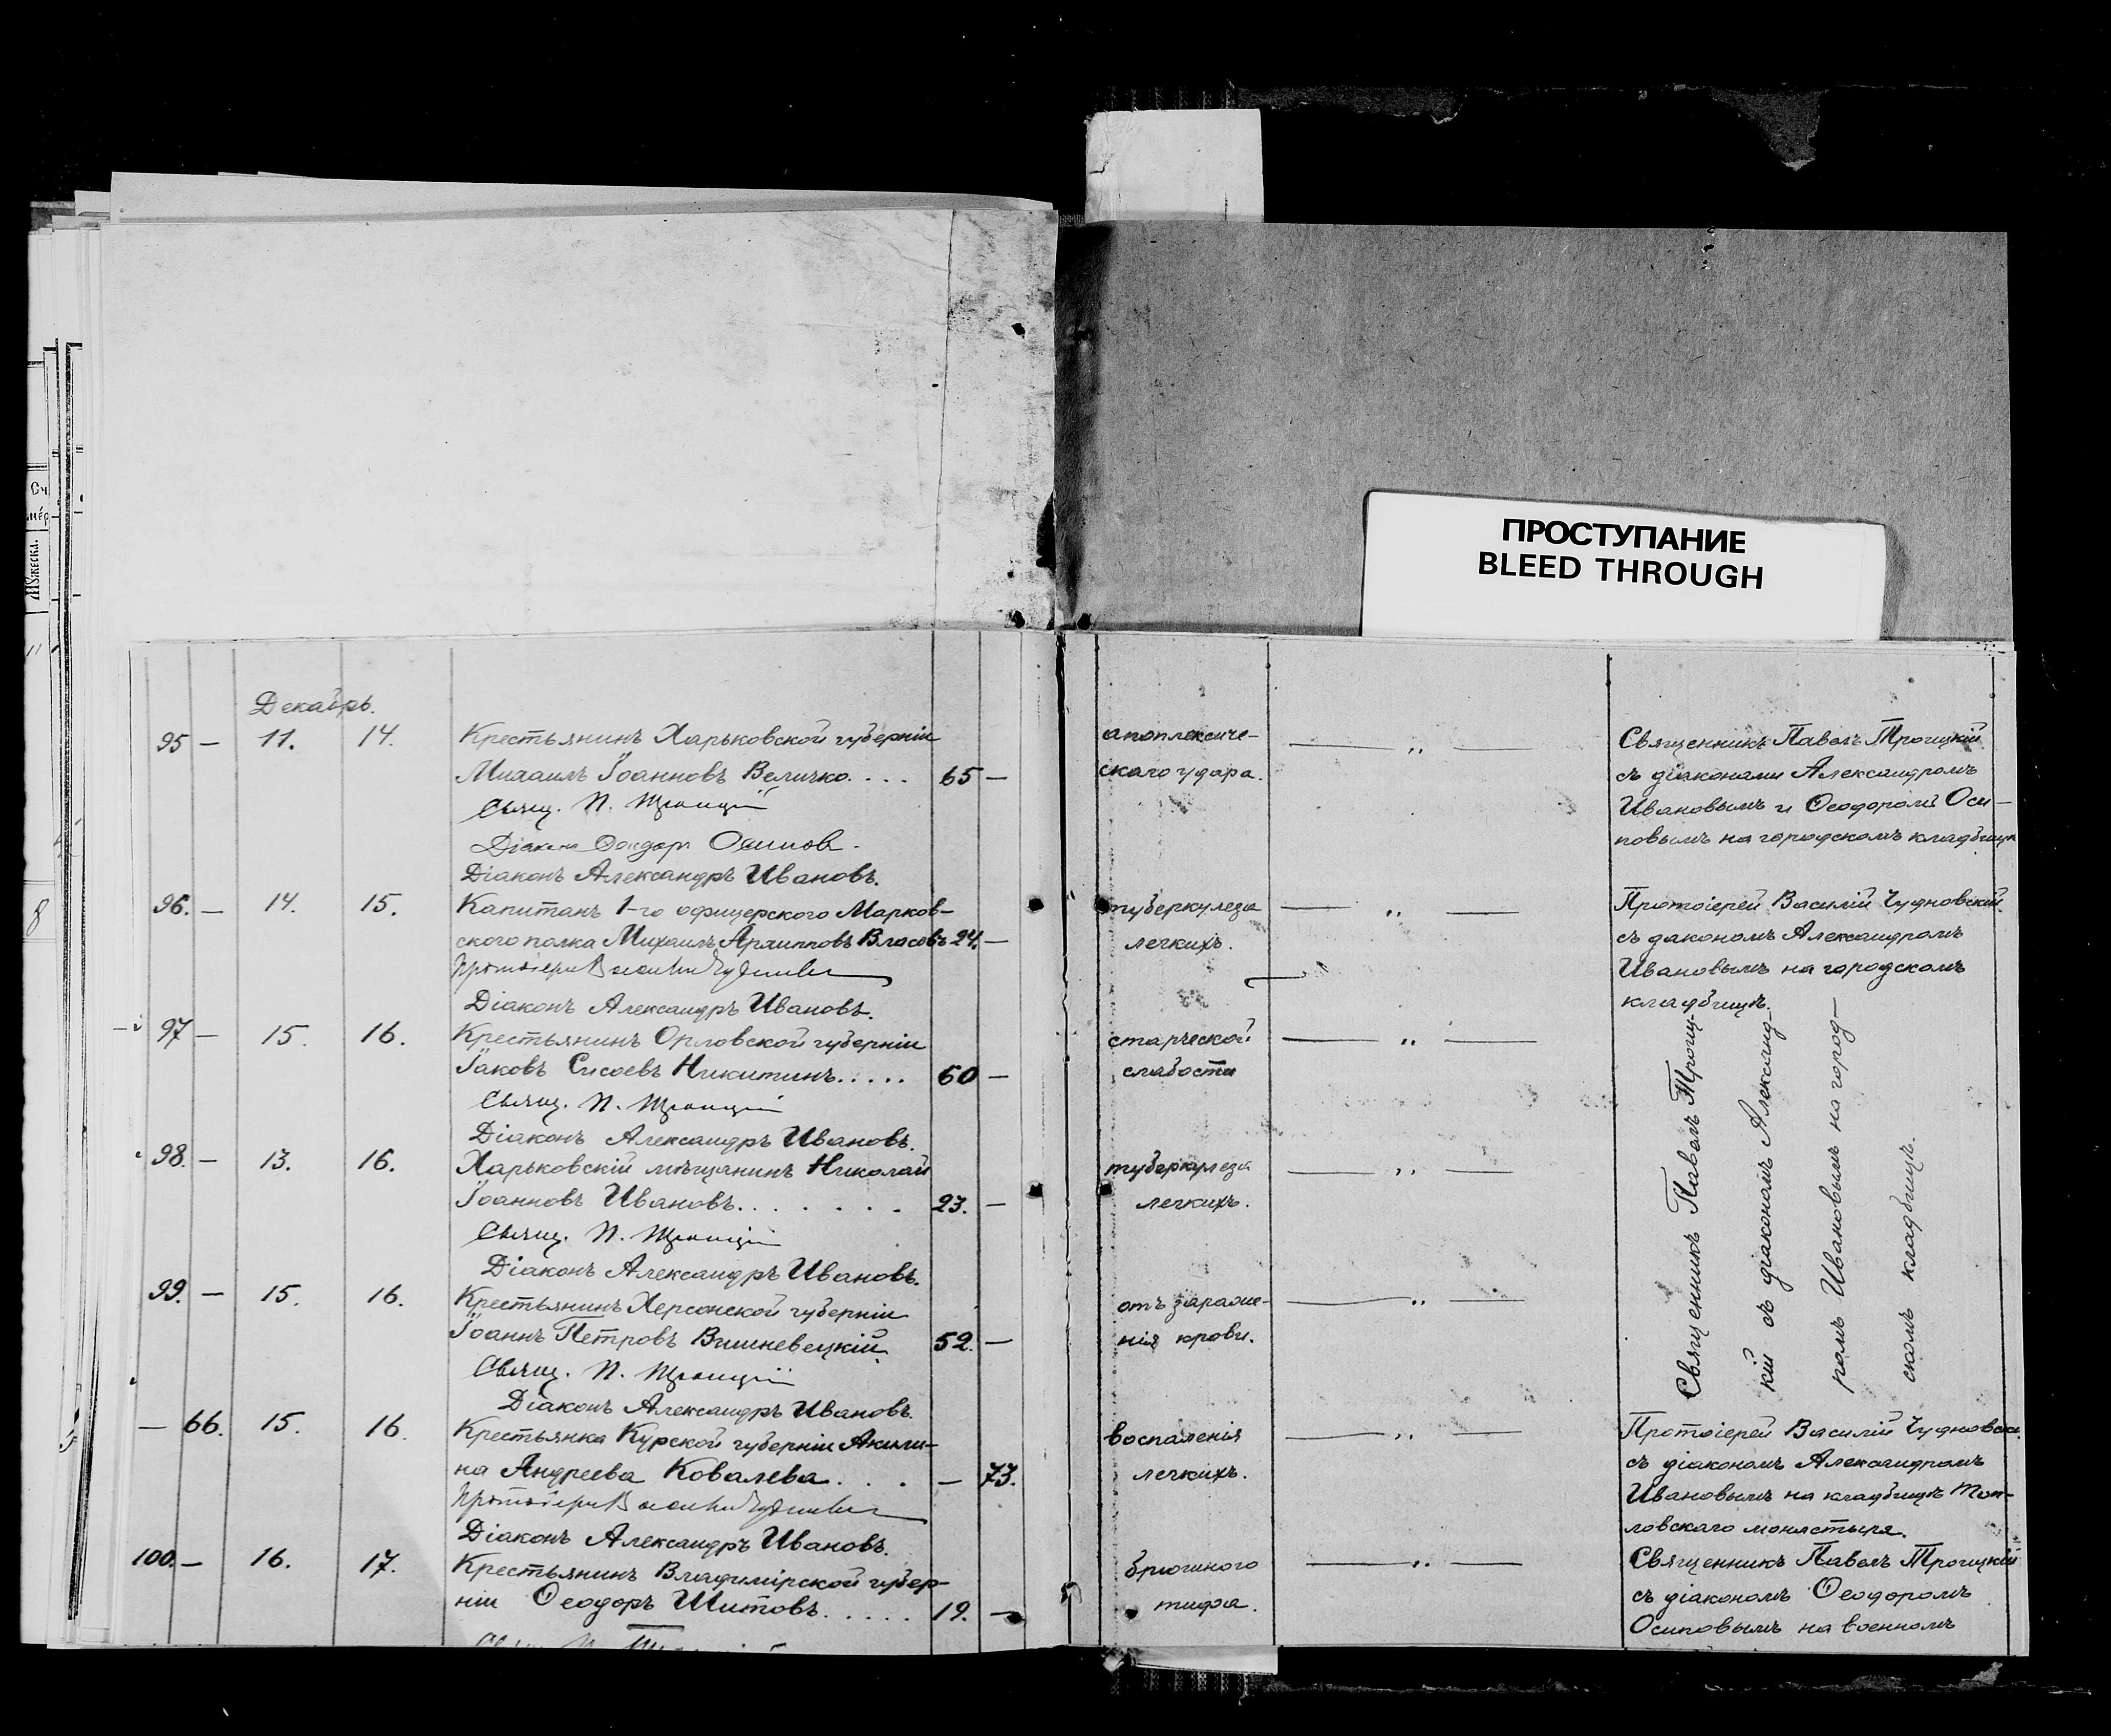 ПРОСТУПАНИЕ
BLEED THROUGH
Декабрь.
95 — 11. 14. Крестьянинъ Харьковской губерніи
Михаилъ Іоанновъ Величко. . . . 65 —
Свящ. П. Троицкій
Діаконъ Феодоръ Осиповъ.
Діаконъ Александръ Ивановъ.
апоплексиче-
скаго удара.
Священникъ Павелъ Троицкій
съ діаконами Александромъ
Ивановымъ и Ѳеодоромъ Оси-
повымъ на городскомъ кладбищѣ
96. — 14. 15. Капитанъ 1-го офицерского Марков-
ского полка Михаилъ Архипповъ Власовъ 24. —
Протоіерей Василій Чудновскій
Діаконъ Александръ Ивановъ.
туберкулеза
легкихъ.
Протоіерей Василій Чудновскій
съ дакономъ Александромъ
Ивановымъ на городскомъ
кладбищѣ.
97 — 15. 16. Крестьянинъ Орловской губерніи
Іаковъ Сисоевъ Никитинъ. . . . . 60 —
Свящ. П. Троицкій
Діаконъ Александръ Ивановъ.
старческой
слабости
98. — 13. 16. Харьковскій мѣщанинъ Николай
Іоанновъ Ивановъ. . . . . . . 23. —
Свящ. П. Троицкій
Діаконъ Александръ Ивановъ.
туберкулеза
легкихъ.
99. — 15. 16. Крестьянинъ Херсонской губерніи
Іоаннъ Петровъ Вишневецкій. 52. —
Свящ. П. Троицкій
Діаконъ Александръ Ивановъ.
отъ зараже-
нія крови.
Священникъ Павелъ Троиц-
кій съ діакономъ Александ-
ромъ Ивановымъ на город-
скомъ кладбищѣ.
— 66. 15. 16. Крестьянка Курской губерніи Акили-
на Андреева Ковалева. . . . — 73.
Протоіерей Василій Чудновскій
Діаконъ Александръ Ивановъ.
воспаленія
легкихъ.
Протоіерей Василій Чудновскі
съ діакономъ Александромъ
Ивановымъ на кладбищѣ Топ-
ловскаго монастыря.
100. — 16. 17. Крестьянинъ Владимірской губер-
ніи Ѳеодоръ Шитовъ. . . . . 19. —
брюшного
тифа.
Священникъ Павелъ Троицкій
съ діакономъ Ѳеодоромъ
Осиповымъ на военномъ